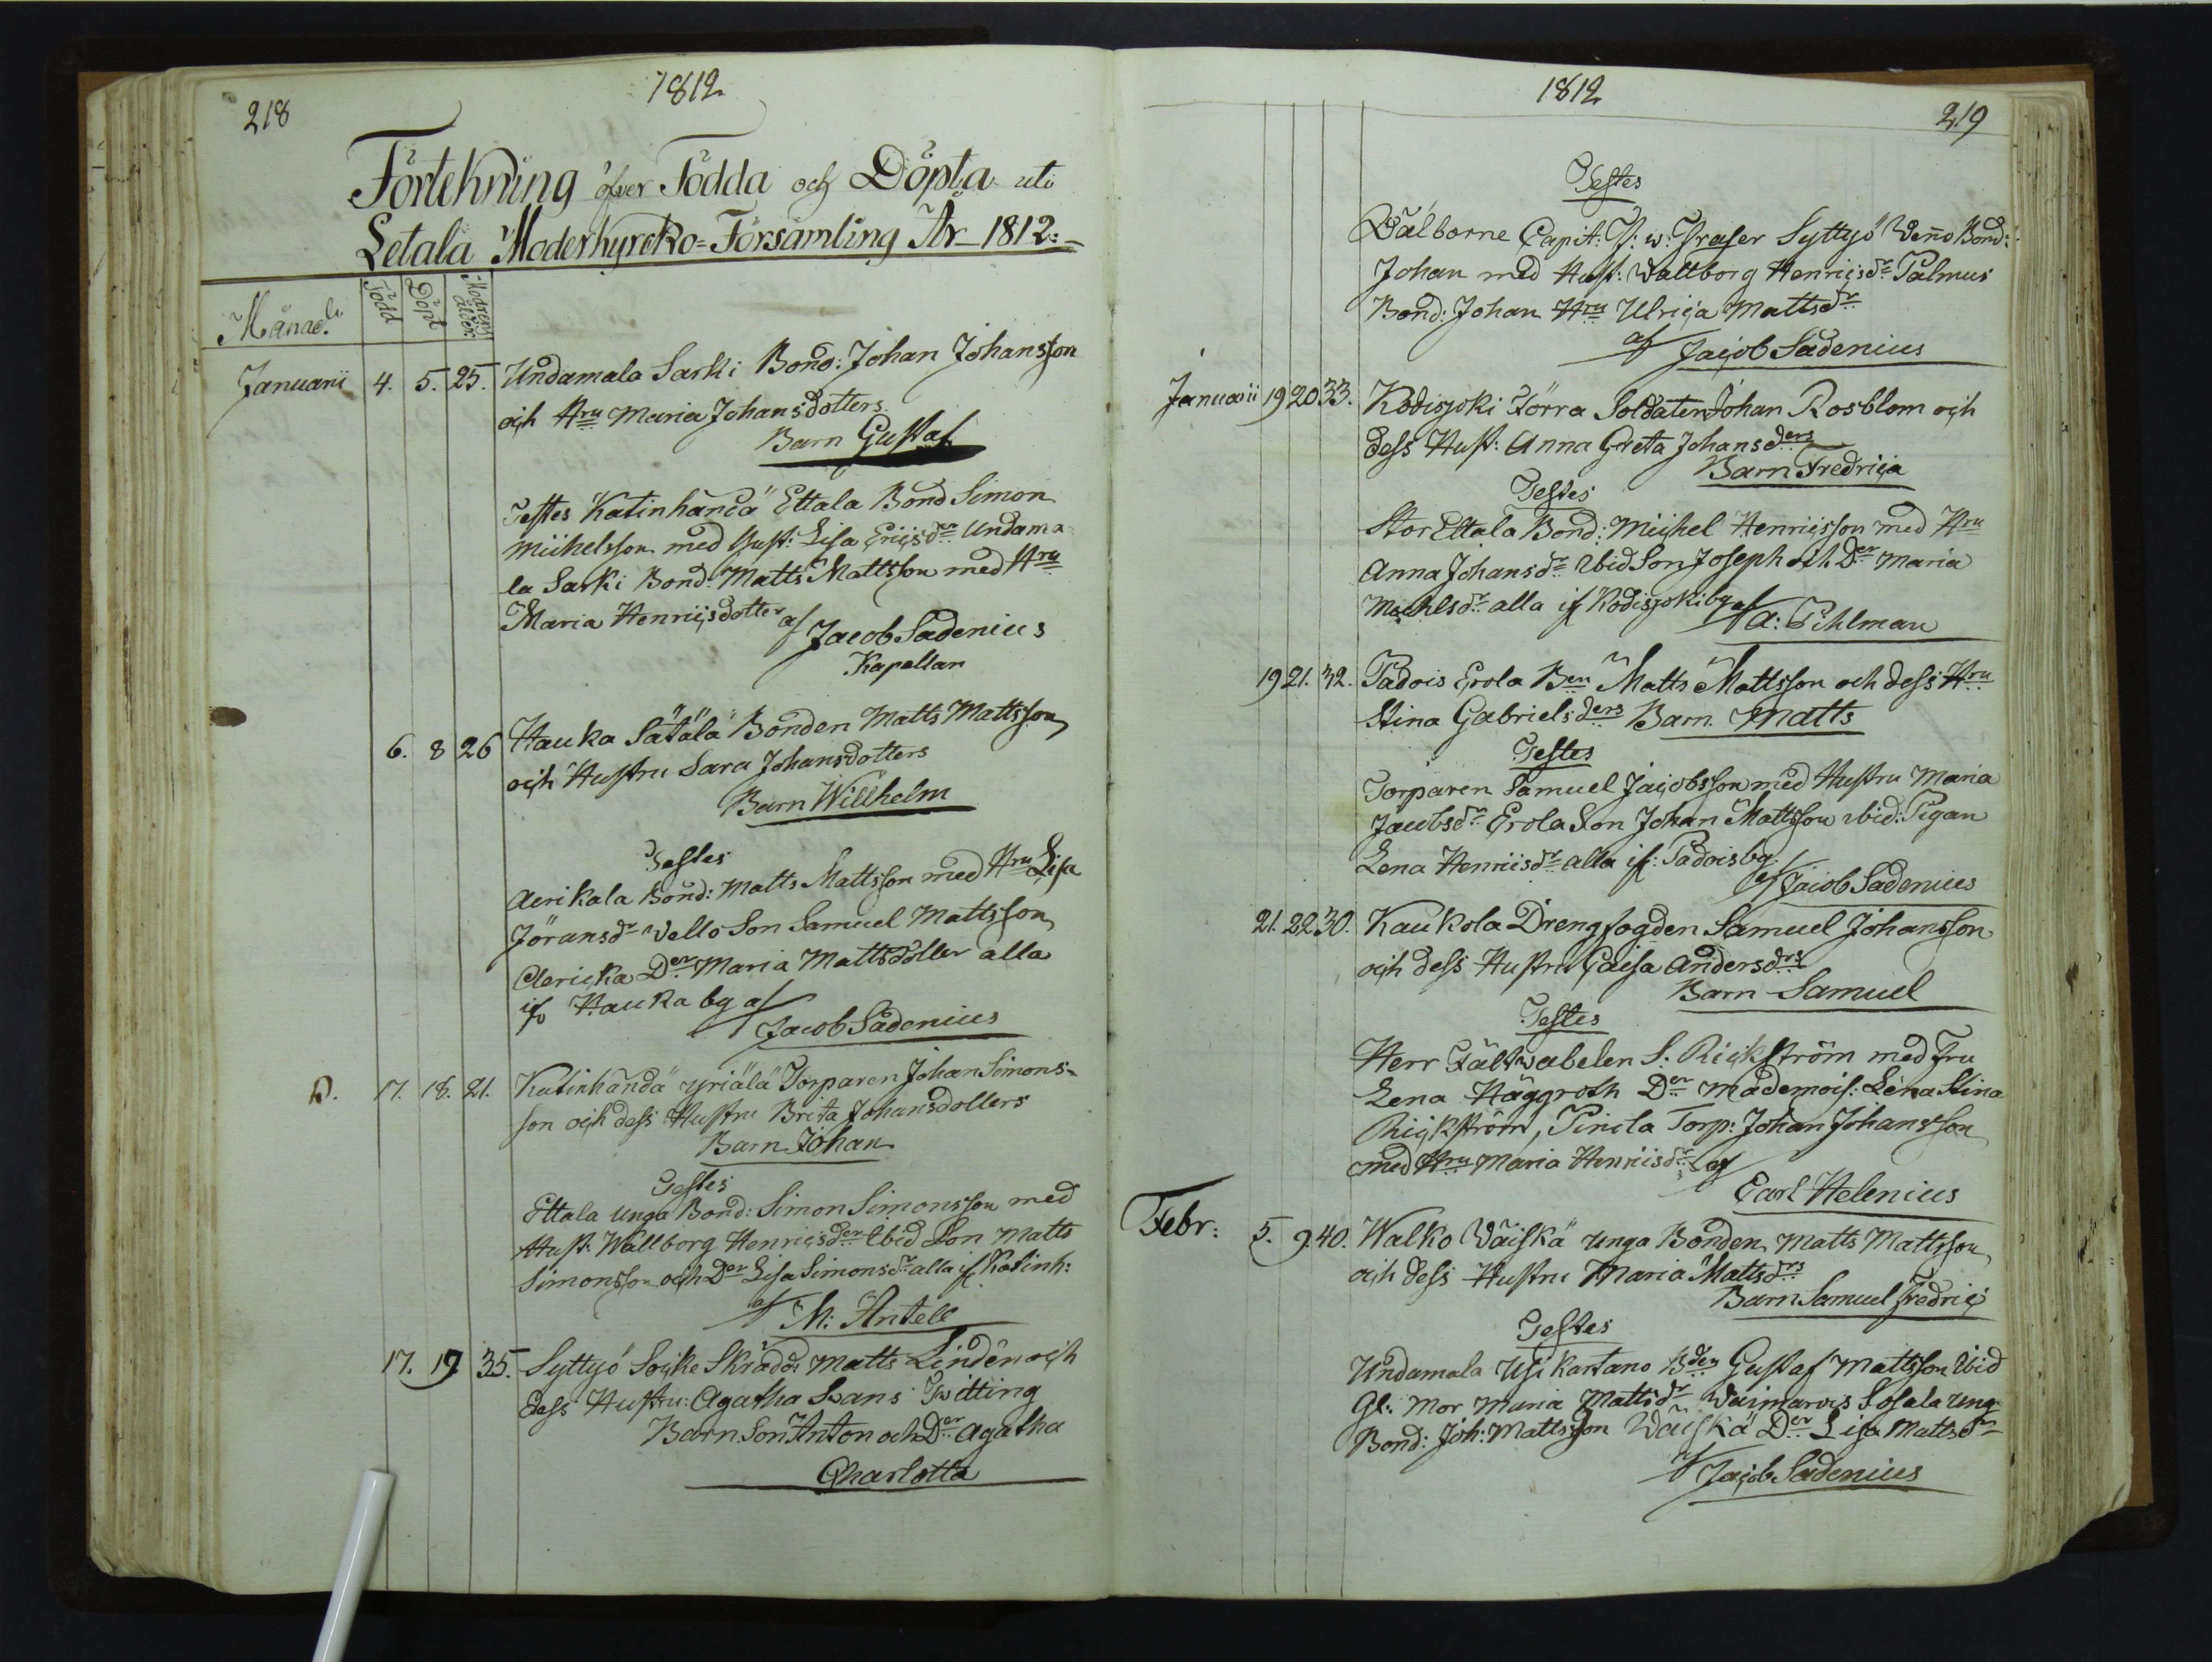 1812
218
Förtekning öfver Födda och Döpta uti
Letala Moderkyrcko=Församling År 1812:
Månad. Född Döpt Moderns ålder
Januarii 4. 5. 25. Undamala Sarki Bond: Johan Johansson
och Hru Maria Johansdotters
Barn Gustaf
Testes Katinhändä Ettala Bond Simon
Michelsson med Hust: Lisa Ericsdr Undama
la Sarki Bond: Matts Mattsson med Hru
Maria Henricsdotter af
Jacob Sadenius
Kapellan
6. 8 26 Hauka Sätälä Bonden Matts Mattsson
och Hustru Sara Johansdotters
Barn Willhelm
Testes
Aerikala Bond: Matts Mattsson med Hru Lisa
Jöransdr Wello Son Samuel Mattsson
Clericka Der Maria Mattsdotter alla
if Hauka by af
Jacob Sadenius
D. 17. 18. 21. Katinhändä Yriälä Torparen Johan Simons=
son och dess Hustru Brita Johansdotters
Barn Johan
Testes
Ettala unga Bond: Simon Simonsson med
Hust: Wallborg Henricsder Ibid Son Matts
Simonsson och Der Lisa Simonsdr alla if Katinh:
af M: Antell
17. 19. 35. Syttyö Socke Skräddr Matts Lindén och
dess Hustru: Agatha Swans Twilling
Barn Son Anton och Der Agatha
Charlotta
1812
219
Testes
Wälborne Capit: F: w: Fraser Syttyö Wenno Bond:
Johan med Hust: Wallborg Henricsdr Palmus
Bond: Johan Hru Ulrica Mattsdr
af Jacob Sadenius
Januarii 19 20 33. Kodisjoki Förra Soldaten Johan Rosblom och
dess Hust: Anna Greta Johansders
Barn Fredrica
Testes
Stor Ettala Bond: Michel Henricsson med Hru
Anna Johansdr Ibid Son Joseph och Der Maria
Michelsdr alla if Kodisjoki by af
A: Pihlman
19 21. 32. Padois Erola Ben Matts Mattsson och dess Hru
Stina Gabrielsders Barn Matts
Testes
Torparen Samuel Jacobsson med Hustru Maria
Jacobsdr Erola Son Johan Mattsson ibid: Pigan
Lena Henricsdr alla if: Padois by.
af Jacob Sadenius
21. 22 30. Kaukola Drengfogden Samuel Johansson
och dess Hustru Caisa Andersdrs
Barn Samuel
Testes
Herr Fältwabelen S. Rickström med Fru
Lena Häggroth Der Mademois: Lena Stina
Rickström, Pinila Torp: Johan Johansson
med Hru Maria Henricsdr af
Carl Helenius
Febr: 5. 9. 40. Walko Wäiskä unga Bonden Matts Mattsson
och dess Hustru Maria Mattsdrs
Barn Samuel Fredric
Testes
Undamala Usikartano Bden Gustaf Mattsson Ibid
Gl: Mor Maria Mattsdr Waimarois Sofala ung
Bond: Joh: Mattsson Wäiskä Der Lisa Mattsdr
af Jacob Sadenius